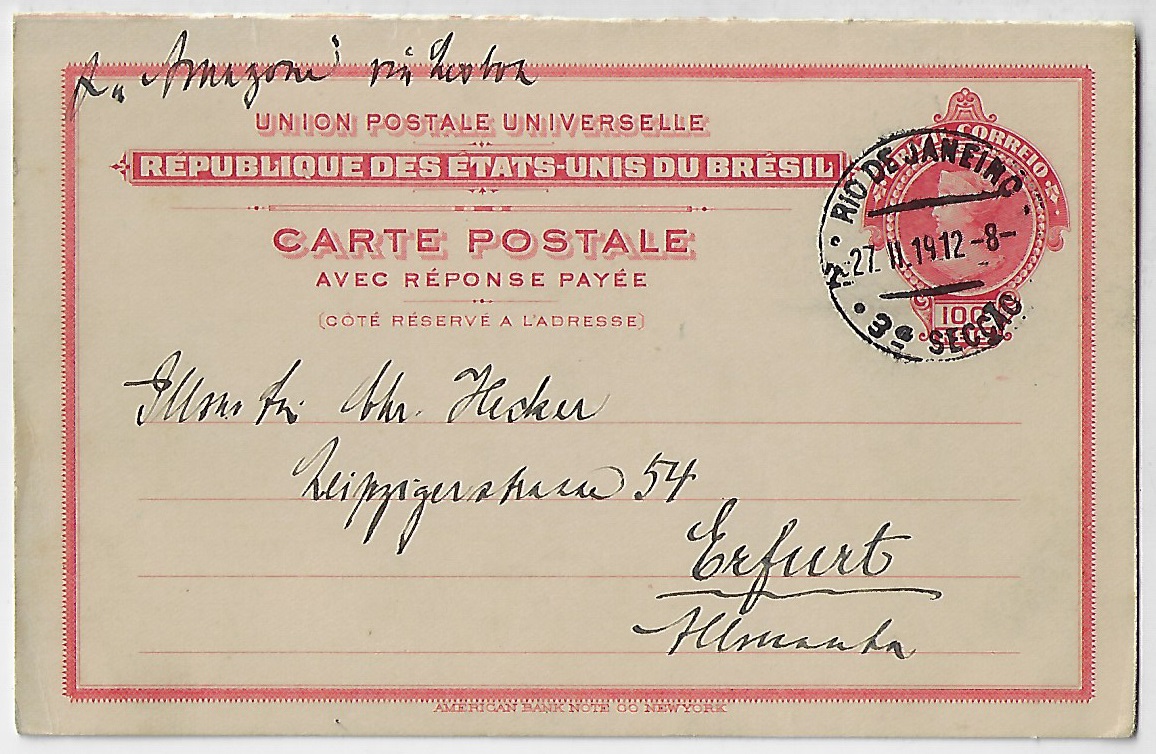 p. „Amazone" via Lisboa
UNION POSTALE UNIVERSELLE
RÉPUBLIQUE DES ÉTATS-UNIS DU BRÉSIL
CARTE POSTALE
AVEC RÉPONSE PAYÉE
(CÔTÉ RÉSERVÉ A L'ADRESSE)
CORREIO
100
RIO DE JANEIRO
27. II. 1912 -8-
3ª SECÇÃO
Illmo. Chr. Hecker
Leipzigerstrasse 54
Erfurt
Allemanha
AMERICAN BANK NOTE CO NEW YORK